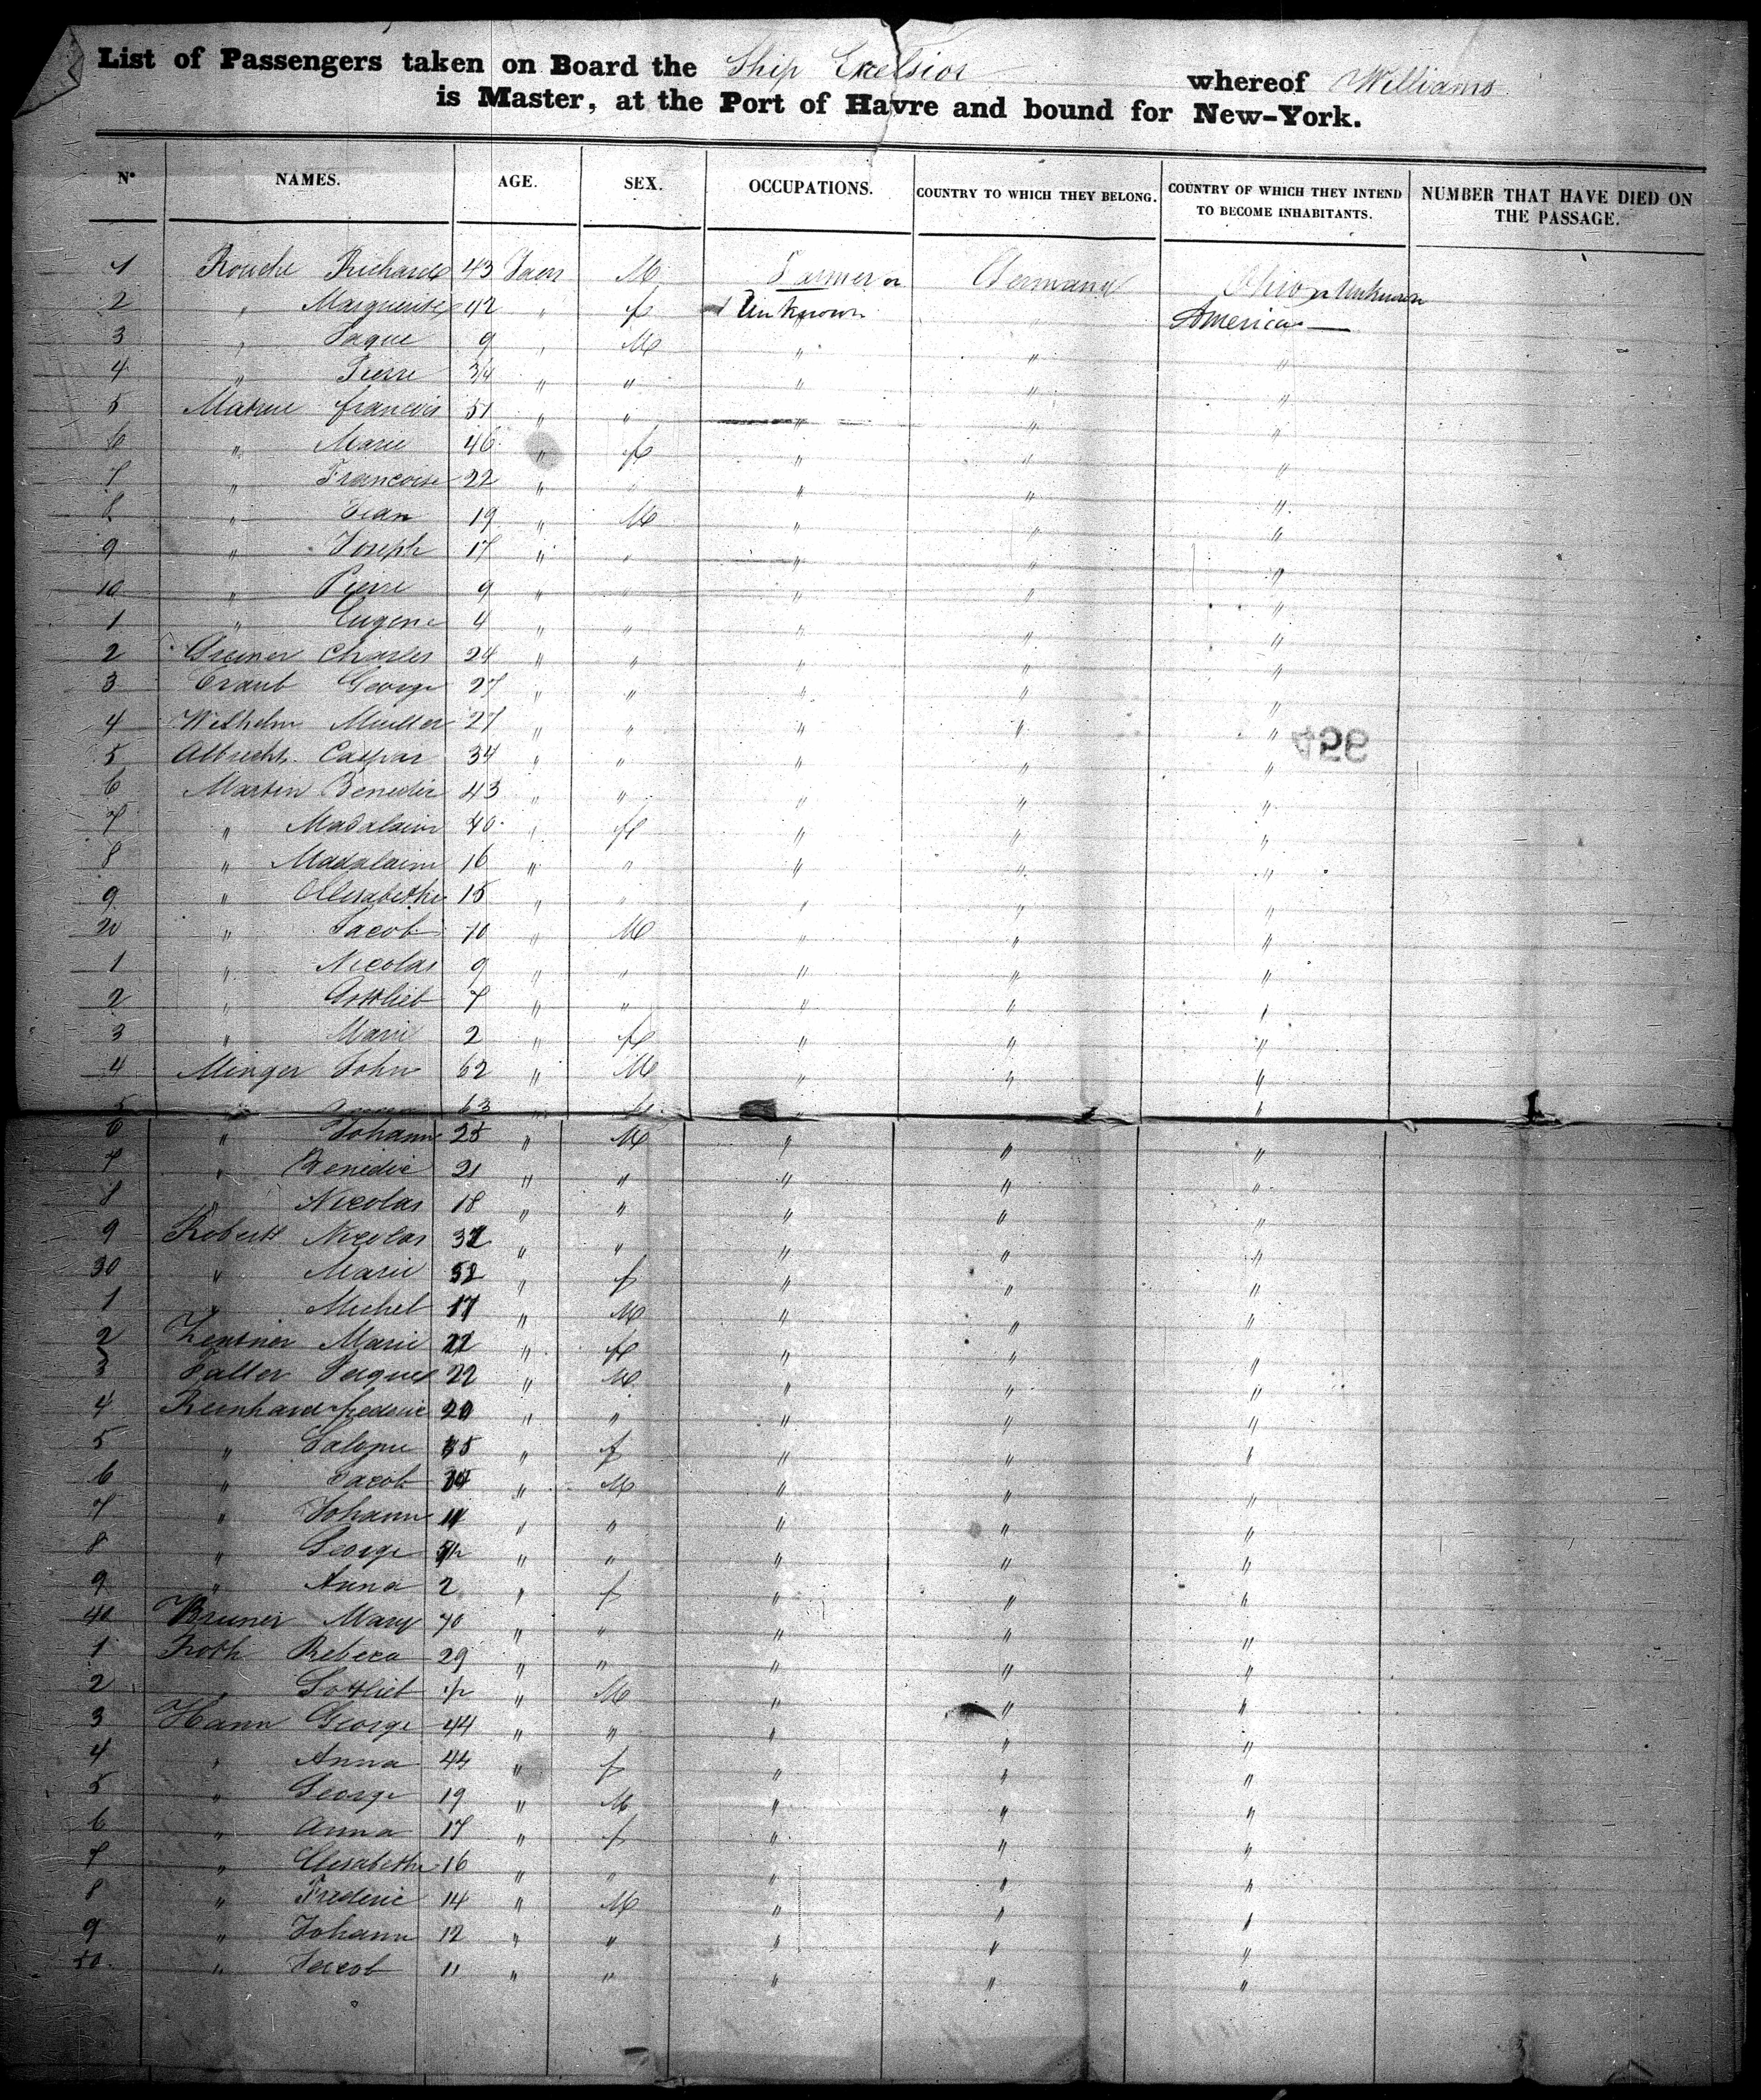 List of Passengers taken on Board the Ship Excelsior whereof Williams
is Master, at the Port of Havre and bound for New-York.
N° NAMES. AGE. SEX. OCCUPATIONS. COUNTRY TO WHICH THEY BELONG. COUNTRY OF WHICH THEY INTEND TO BECOME INHABITANTS. NUMBER THAT HAVE DIED ON THE PASSAGE.
1 Rouche Richard 43 M Farmer or Germany Ohio or Unknown
2 " Marguerite 42 " f Unknown America
3 " Jaque 9 " M " " "
4 " Pierre 34 " " " " "
5 francois 51 " " " " "
6 " Marie 46 " f " " "
7 " Francoise 22 " " " " "
8 " Jean 19 " M " " "
9 " Joseph 17 " " " " "
10 " Pierre 9 " " " " "
1 " Eugene 4 " " " " "
2 Greiner Charles 24 " " " " "
3 Traub George 27 " " " " "
4 Wilhelm Muller 27 " " " " "
5 Albrecht Caspar 34 " " " " "
6 Martin Benedic 43 " " " " "
7 " Madalain 40 " f " " "
8 " Madalain 16 " " " " "
9 " Elisabethe 15 " " " " "
20 " Jacob 10 " M " " "
1 " Nicolas 9 " " " " "
2 " Gottlieb 7 " " " " "
3 " Marie 2 " f " " "
4 Minger John 62 " M " " "
5 " 63 " " "
6 " Johann 25 " M " " "
7 " Benedic 21 " " " " "
8 " Nicolas 18 " " " " "
9 Robert Nicolas " " " " "
30 " Marie 52 " f " " "
1 " Michel 17 " M " " "
2 Zentner Marie " f " " "
3 Faller Jaques 22 " M " " "
4 Reinhard frederic 20 " " " " "
5 " Salome " f " " "
6 " Jacob " M " " "
7 " Johann 11 " " " " "
8 " George " " " " "
9 " Anna 2 " f " " "
40 Bruner Mary " " " " "
1 Roth Rebeca 29 " " " " "
2 " Gottlieb 1/2 " M " " "
3 Hann George 44 " " " " "
4 " Anna 44 " f " " "
5 " George 19 " M " " "
6 " Anna 17 " f " " "
7 " Elisabethe 16 " " " " "
8 " Frederic 14 " M " " "
9 " Johann 12 " " " " "
50 " Jacob 11 " " " " "